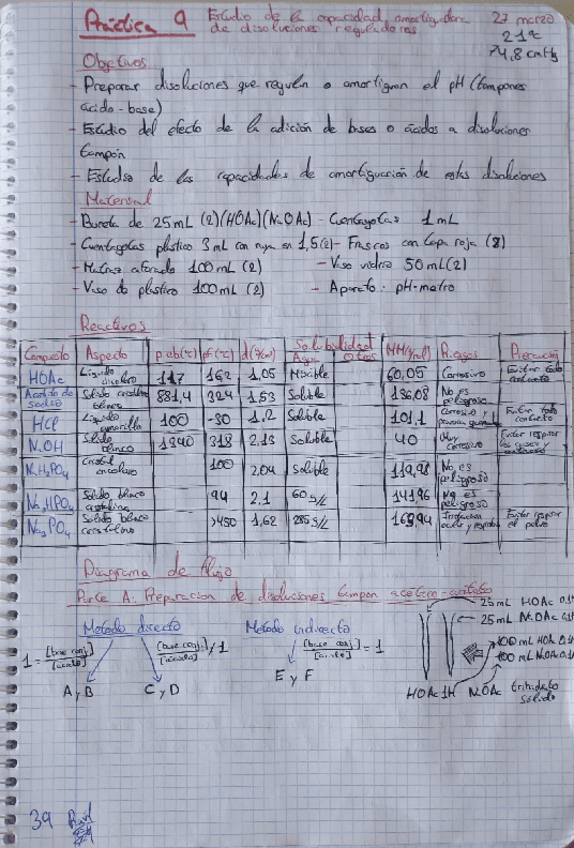 Práctica 9 Estudio de la capacidad amortiguadora 27 marzo
de disoluciones reguladoras 21ºC
74,8 cmHg
Objetivos
- Preparar disoluciones que regulen o amortiguan el pH (tampones
ácido-base)
- Estudio del efecto de la adición de bases o ácidos a disoluciones
tampón
- Estudio de las capacidades de amortiguación de estas disoluciones
Material
- Bureta de 25mL (2)(HOAc)(NaOAc) - Cuentagotas 1mL
- Cuentagotas plástico 3mL con raya en 1,5(2) - Frascos con tapa roja (8)
- Matraz aforado 100mL (2) - Vaso vidrio 50mL(2)
- Vaso de plástico 100mL (2) - Aparato: pH-metro
Reactivos
Compuesto Aspecto p.eb(ºC) pf(ºC) d(g/cm³) Solubilidad MM(g/mol) Riesgos Precaución
Agua Otros
HOAc Líquido incoloro 117 16,2 1,05 Miscible 60,05 Corrosivo Evitar todo contacto
Acetato de sodio Sólido cristalino blanco 881,4 324 1,53 Soluble 136,08 No es peligroso
HCl Líquido amarillo 100 -30 1,2 Soluble 101,1 Corrosivo y Evitar todo contacto
NaOH Sólido blanco 1390 318 2,13 Soluble 40 Muy corrosivo Evitar respirar
NaH₂PO₄ Cristal incoloro 100 2,04 Soluble 119,98 No es peligroso
Na₂HPO₄ Sólido blanco cristalino 94 2,1 60 g/L 141,96 No es peligroso
Na₃PO₄ Sólido blanco cristalino >450 1,62 285 g/L 163,94 Evitar respirar el polvo
Diagrama de flujo
Parte A: Preparación de disoluciones tampón acético-acetato
Método directo Método indirecto
1 = [base conj.]/[ácido] [base conj.]/[ácido] ≠ 1 [base conj.]/[ácido] = 1
A y B C y D E y F
25mL HOAc 0,1M
25 mL NaOAc 0,1M
100mL HOAc 0,1M
100mL NaOAc 0,1M
HOAc 1M NaOAc trihidrato
sólido
39